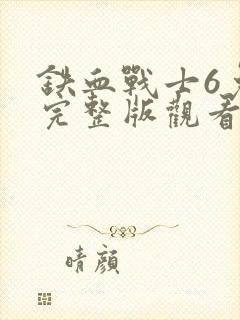 鉄血戰士6
完整版觀看
晴顏